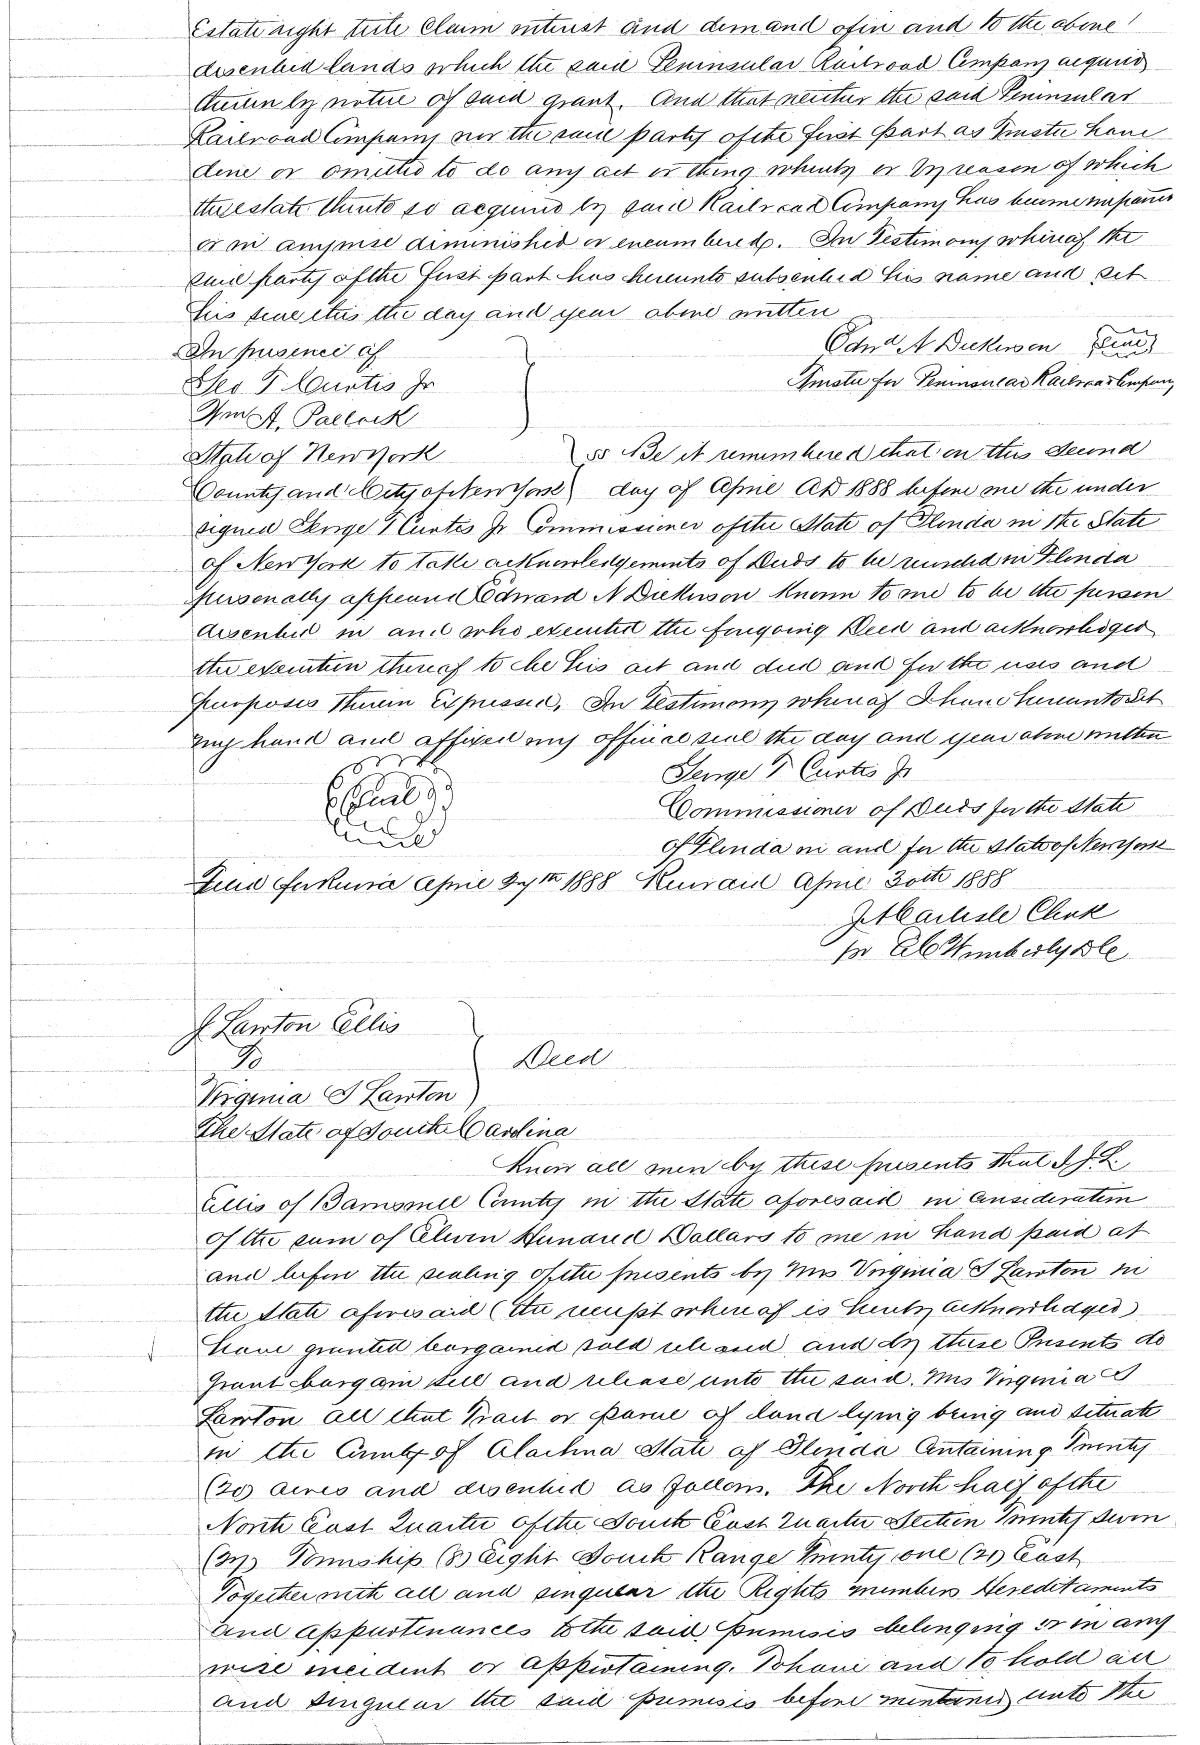 Estate right title Claim interest and demand of in and to the above
described lands which the said Peninsular Railroad Company acquired
therein by virtue of said grant. And that neither the said Peninsular
Railroad Company nor the said party of the first part as Trustee have
done or omitted to do any act or thing whereby or by reason of which
the estate thereto so acquired by said Railroad Company has become impaired
or in anywise diminished or encumbered. In Testimony whereof the
said party of the first part has hereunto subscribed his name and set
his seal this the day and year above written
In presence of
Edwd N Dickerson Seal
Geo T Curtis Jr
Trustee for Peninsular Railroad Company
Wm A. Pollock
State of New York } ss Be it remembered that on this Second
County and City of New York day of April AD 1888 before me the under
signed George T Curtis Jr Commissioner of the State of Florida in the State
of New York to take acknowledgements of Deeds to be recorded in Florida
personally appeared Edward N Dickerson Known to me to be the person
described in and who executed the foregoing Deed and acknowledged
the execution thereof to be his act and deed and for the uses and
purposes therein Expressed, In Testimony whereof I have hereunto Set
my hand and affixed my official seal the day and year above written
Seal
George T Curtis Jr
Commissioner of Deeds for the State
of Florida in and for the State of New York
Filed for Record April 27th 1888 Record April 30th 1888
J A Carlisle Clerk
pr Wimberly D C
J. Lawton Ellis
To } Deed
Virginia S Lawton
The State of South Carolina
Know all men by these presents that I J. L.
Ellis of Barnwell County in the State aforesaid in Consideration
of the sum of Eleven Hundred Dollars to me in hand paid at
and before the sealing of the presents by Mrs Virginia S Lawton in
the State aforesaid (the receipt whereof is hereby acknowledged)
have granted bargained sold released and by these Presents do
grant bargain sell and release unto the said. Mrs Virginia S
Lawton all that Tract or Parcel of land lying being and situate
in the County of Alachua State of Florida Containing Twenty
(20) acres and described as follows. The North half of the
North East Quarter of the South East Quarter Section Twenty seven
(27) Township (8) Eight South Range Twenty one (21) East
Together with all and singular the Rights members Hereditaments
and appurtenances to the said premises belonging or in any
wise incident or appertaining. To have and to hold all
and singular the said premises before mentioned unto the